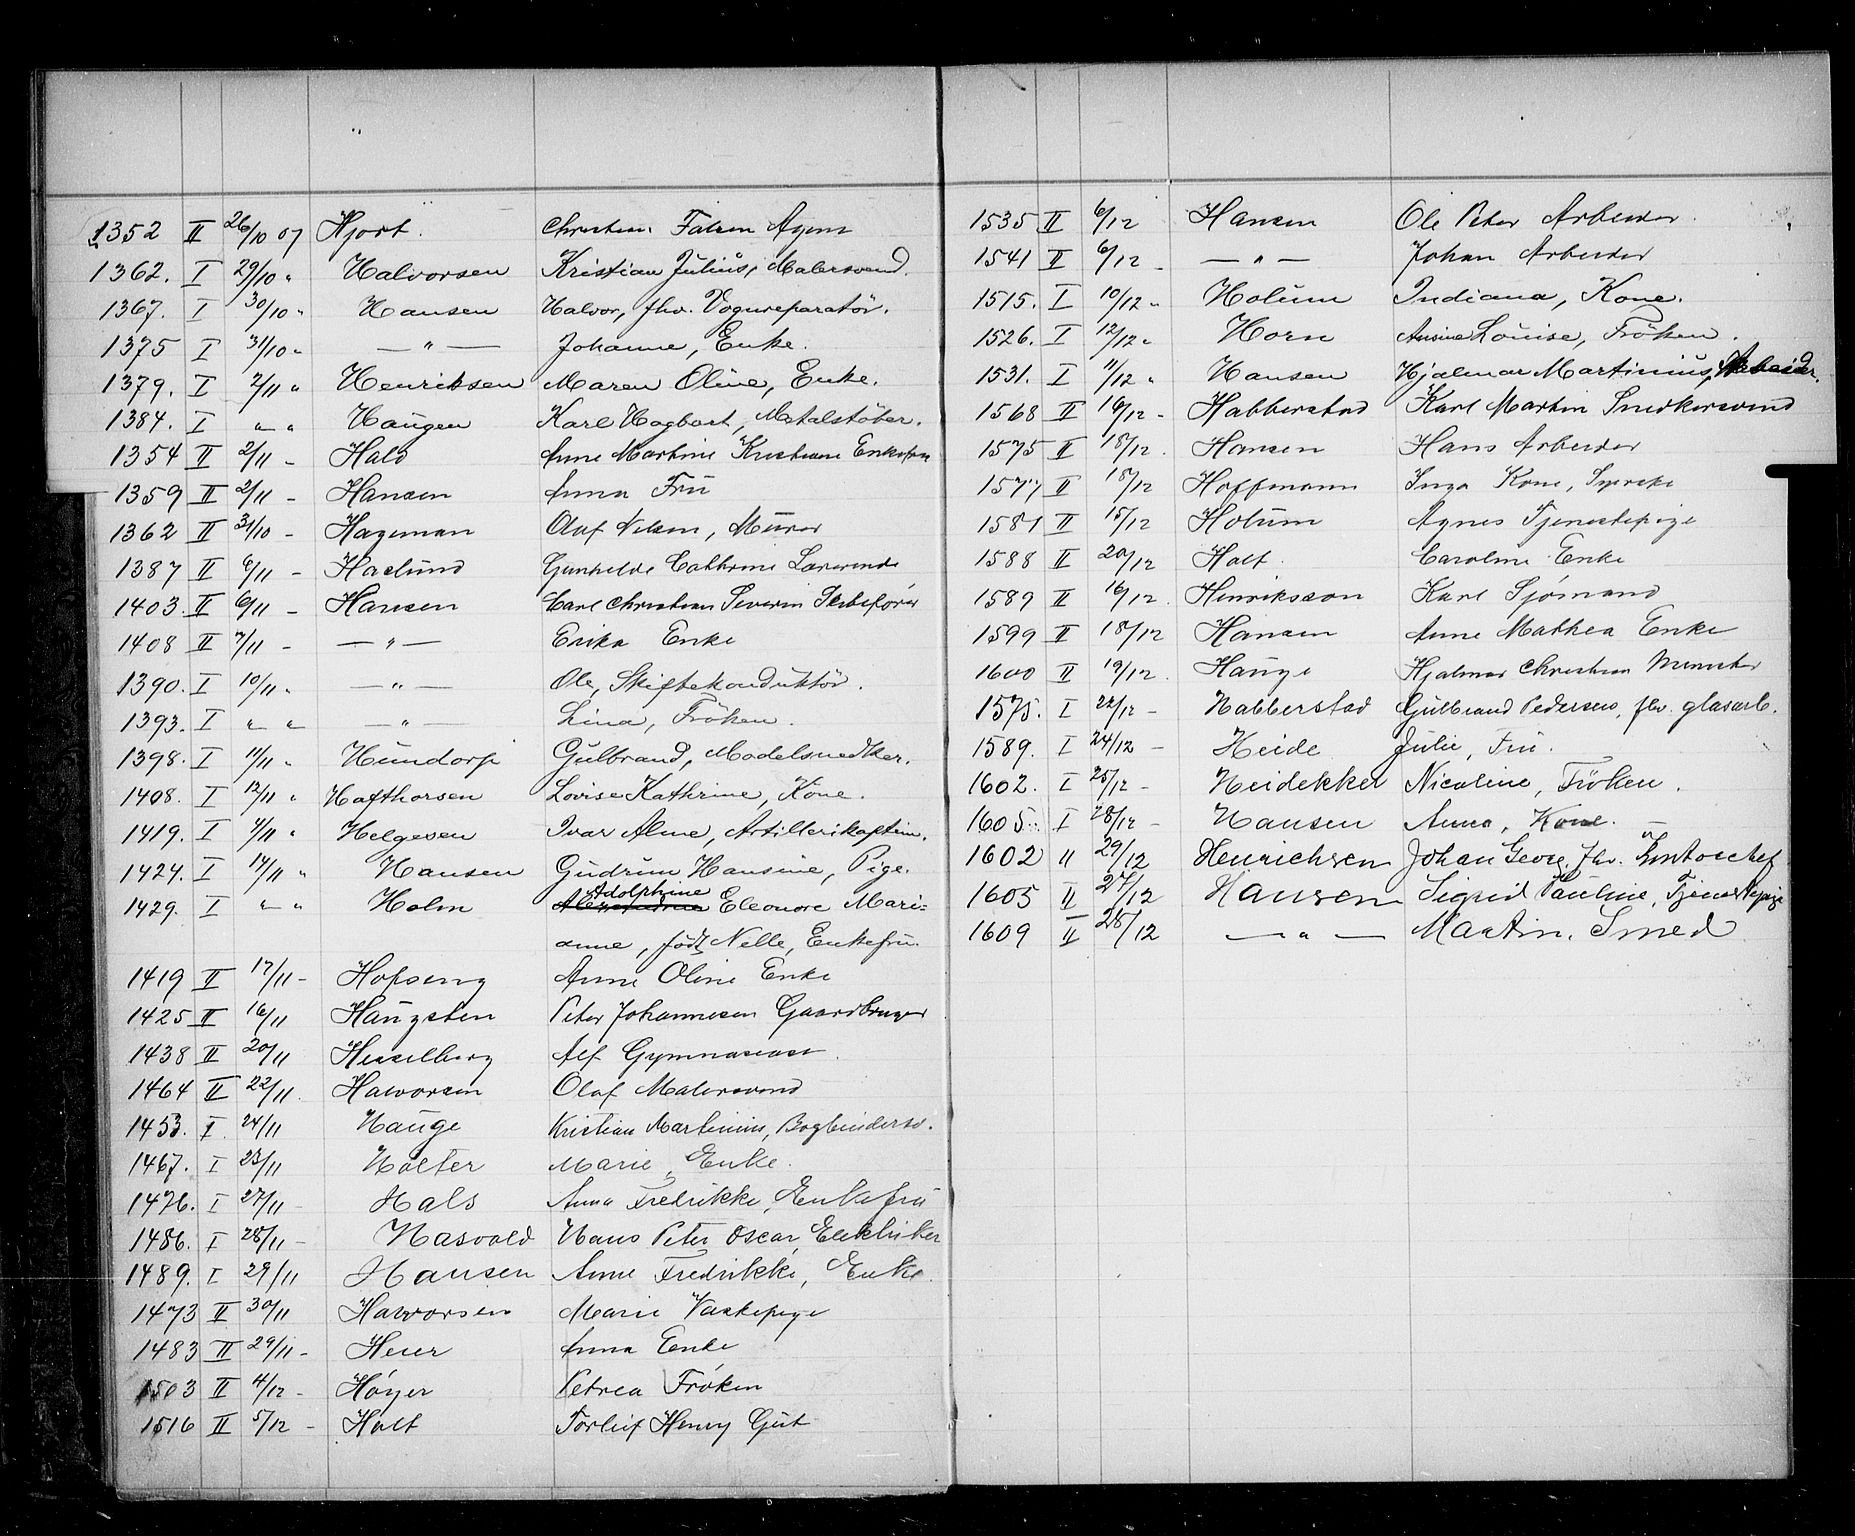 1352 II 26/10 07 Hjort. Christian Agent
1362. I 29/10 " Halvorsen Kristian Julius, Malersvend.
1367. I 30/10 " Hansen Halvor, fhv. Vognreparatör.
1375 I 31/10 " — " — Johanne, Enke.
1379. I 2/11 " Henriksen Maren Oline, Enke.
1384. I " " Haugen Karl Hagbart, Metalstöber.
1354 II 2/11 - Hals Anne Martine Kristiane Enkefru
1359 II 2/11 - Hansen Anna Fru
1362 II 31/10 - Hageman Olaf Nilsen, Murer
1387 II 6/11 - Haslund Gunhilde Cathrine Lærerinde
1403. II 6/11 - Hansen Carl Christian Severin Skibsfører
1408 II 7/11 - — " — Erika Enke
1390. I 10/11 " — " — Ole, Skiftekonduktör.
1393. I " " — " — Lina, Fröken.
1398. I 11/11 " Hundorp Gulbrand, Modelsnedker.
1408. I 12/11 " Hafthorsen Lovise Kathrine, Kone.
1419. I 4/11 " Helgesen Ivar Alme, Artillerikaptein.
1424. I 14/11 " Hansen Gudrun Hansine, Pige.
1429. I " " Holm Adolphine Eleonore Mari=
anne, född Nelle, Enkefru.
1419 II 17/11 - Hofseng Anne Oline Enke
1425 II 16/11 Haugsten Peter Johannesen Gaardbruger
1438 II 20/11 Hesselberg Alf Gymnasiast
1464 II 22/11 Halvorsen Olaf Malersvend
1453. I. 24/11 Hauge Kristian Martinius, Bogbindersv.
1467. I 23/11 Holter Marie, Enke.
1476. I 27/11 - Hals Anna Fredrikke, Enkefru
1486. I 28/11 - Hasvold Hans Peter Oscar, Elektriker
1489. I 29/11 Hansen Anne Fredrikke, Enke.
1473 II 30/11 Halvorsen Marie Vaskepige
1483 II 29/11 - Heier Anna Enke
1503 II 4/12 - Høyer Petrea Frøken
1516 II 5/12 - Holt Torleif Henry Gut
1535 II 6/12 Hansen Ole Peter Arbeider.
1541 II 6/12 - — " — Johan Arbeider
1515. I 10/12 " Holum Indiana, Kone.
1526. I 12/12 " Horn Ansine Louise, Fröken.
1531. I 11/12 " Hansen Hjalmar Martinius, Arbeider.
1568 II 16/12 - Habberstad Karl Martin Snedkersvend
1575 II 18/12. Hansen Hans Arbeider
1577 II 18/12 Hoffmann Inga Kone,
1581 II 15/12 Holum Agnes Tjenestepige
1588 II 20/12 Holt. Caroline Enke
1589 II 16/12. Henriksson Karl Sjømand
1599 II 18/12 Hansen Anne Mathea Enke
1600 II 19/12. Hauge Hjalmar Christian
1575. I 22/12 - Habberstad Gulbrand Pedersen, fhv. glasarb.
1589. I 24/12 - Heide Julie, Fru.
1602. I 25/12 - Heidekker Nicoline, Fröken.
1605. I 28/12 - Hansen Anna, Kone. —
1602 II 29/12 Henrichsen Johan Georg, fhv. Kontorchef
1605 II 27/12 Hansen Sigrid Pauline, Tjenestepige
1609 II 28/12 — " — Martin, Smed